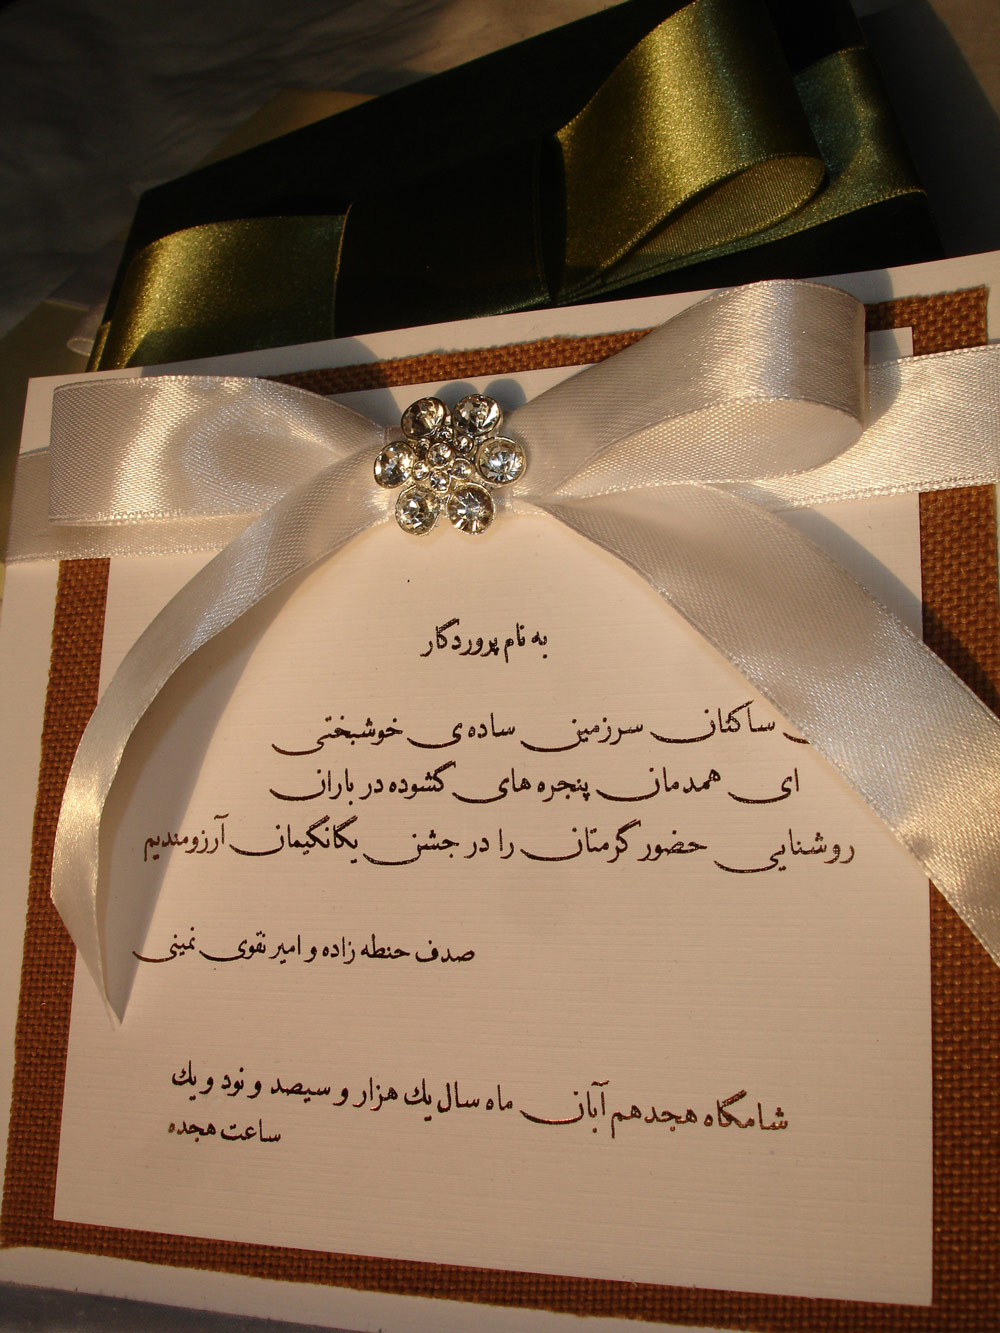 به نام پروردگار
ساکنان سرزمین ساده‌ی خوشبختی
ای همدمان پنجره های گشوده در باران
روشنایی حضور گرمتان را در جشن یگانگیمان آرزومندیم
صدف حنطه زاده و امیر نقوی نمینی
شامگاه هجدهم آبان ماه سال یك هزار و سیصد و نود و یك
ساعت هجده